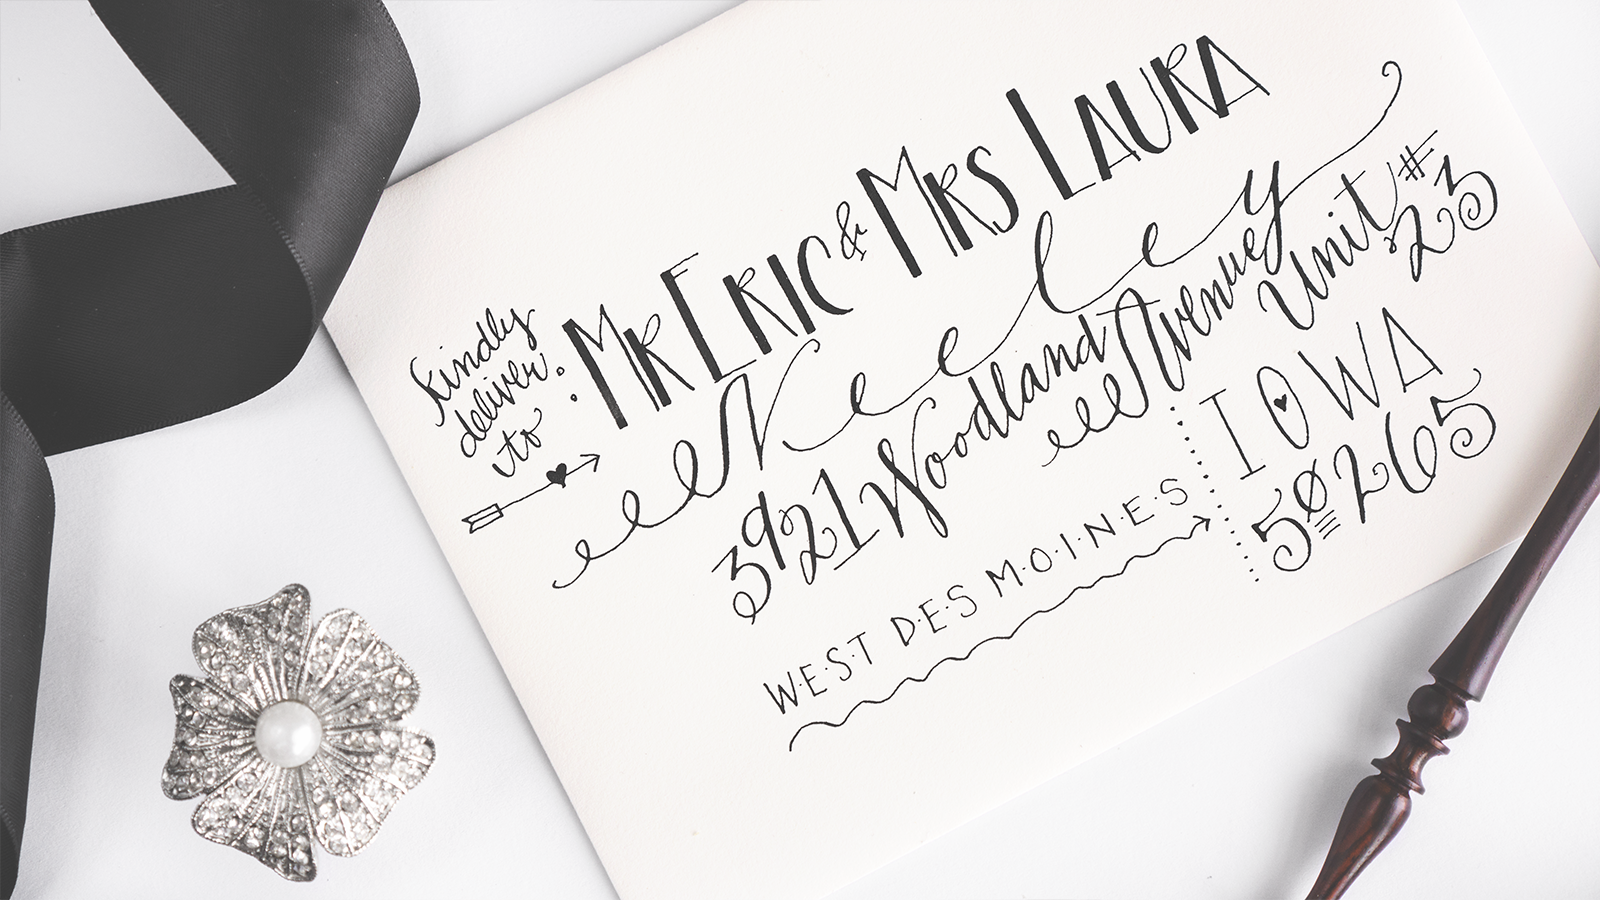 kindly
deliver
to :
Mr Eric & Mrs Laura
Neeley
3921 Woodland Avenue
Unit #
23
WEST DES MOINES
IOWA
50265